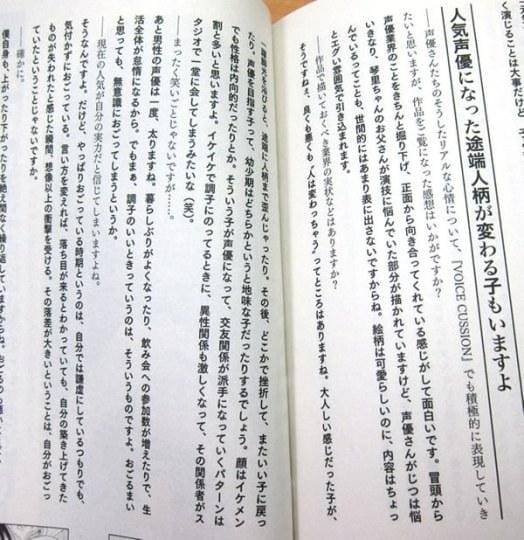 く演じることは大事だけ
人気声優になった途端人柄が変わる子もいますよ
――声優さんたちのそうしたリアルな心情について、『VOICE CUSSION』でも積極的に表現していき
たいと思いますが、作品をご覧になった感想はいかがですか？
声優業界のことをきちんと掘り下げ、正面から向き合ってくれている感じがして面白いです。冒頭から
いきなり、琴里ちゃんのお父さんが演技に悩んでいた部分が描かれていますけど、声優さんがじつは悩
んでいることっても、世間的にはあまり表に出さないですからね。絵柄は可愛らしいのに、内容はちょっ
とエグい雰囲気で引き込まれます。
――作品で描いておくべき業界の実状などはありますか？
そうですねぇ、良くも悪くも〝人は変わっちゃう〟ってところはありますね。大人しい感じだった子が、
一瞬脚光を浴びると、途端に人柄まで歪んじゃったり。その後、どこかで挫折して、またいい子に戻っ
たり。声優を目指す人って、幼少期はどちらかというと地味な子だったりするでしょう。顔はイケメン
でも性格は内向的だったりとか。そういう子が声優になって、交友関係が派手になっていくパターンは
割と多いと思いますよ。イケイケで調子にのってるときに、異性関係も激しくなって、その関係者がス
タジオで一堂に会してしまうみたいな（笑）。
――まったく笑いごとじゃないですが……。
あと男性の声優は一度、太りますね。暮らしぶりがよくなったり、飲み会への参加数が増えたりで、生
活全体が怠惰になるから。でもまぁ、調子のいいときっていうのは、そういうものですよ。おごるまい
と思っても、無意識におごってしまうというか。
――現在の人気が自分の実力だと信じてしまいますよね。
そうなんですよ。だけど、やっぱりおごっている時期というのは、自分では謙虚にしているつもりでも、
気付かずにおごっている。言い方を変えれば、落ち目が来るとわかっていても、自分の築き上げてきた
ものが失われたと感じた瞬間、想像以上の衝撃を受ける。その落差が大きいということは、自分がおごっ
ていたということじゃないですか。
――確かに。
僕自身も、上がったり下がったりを絶え間なく繰り返していますからね。